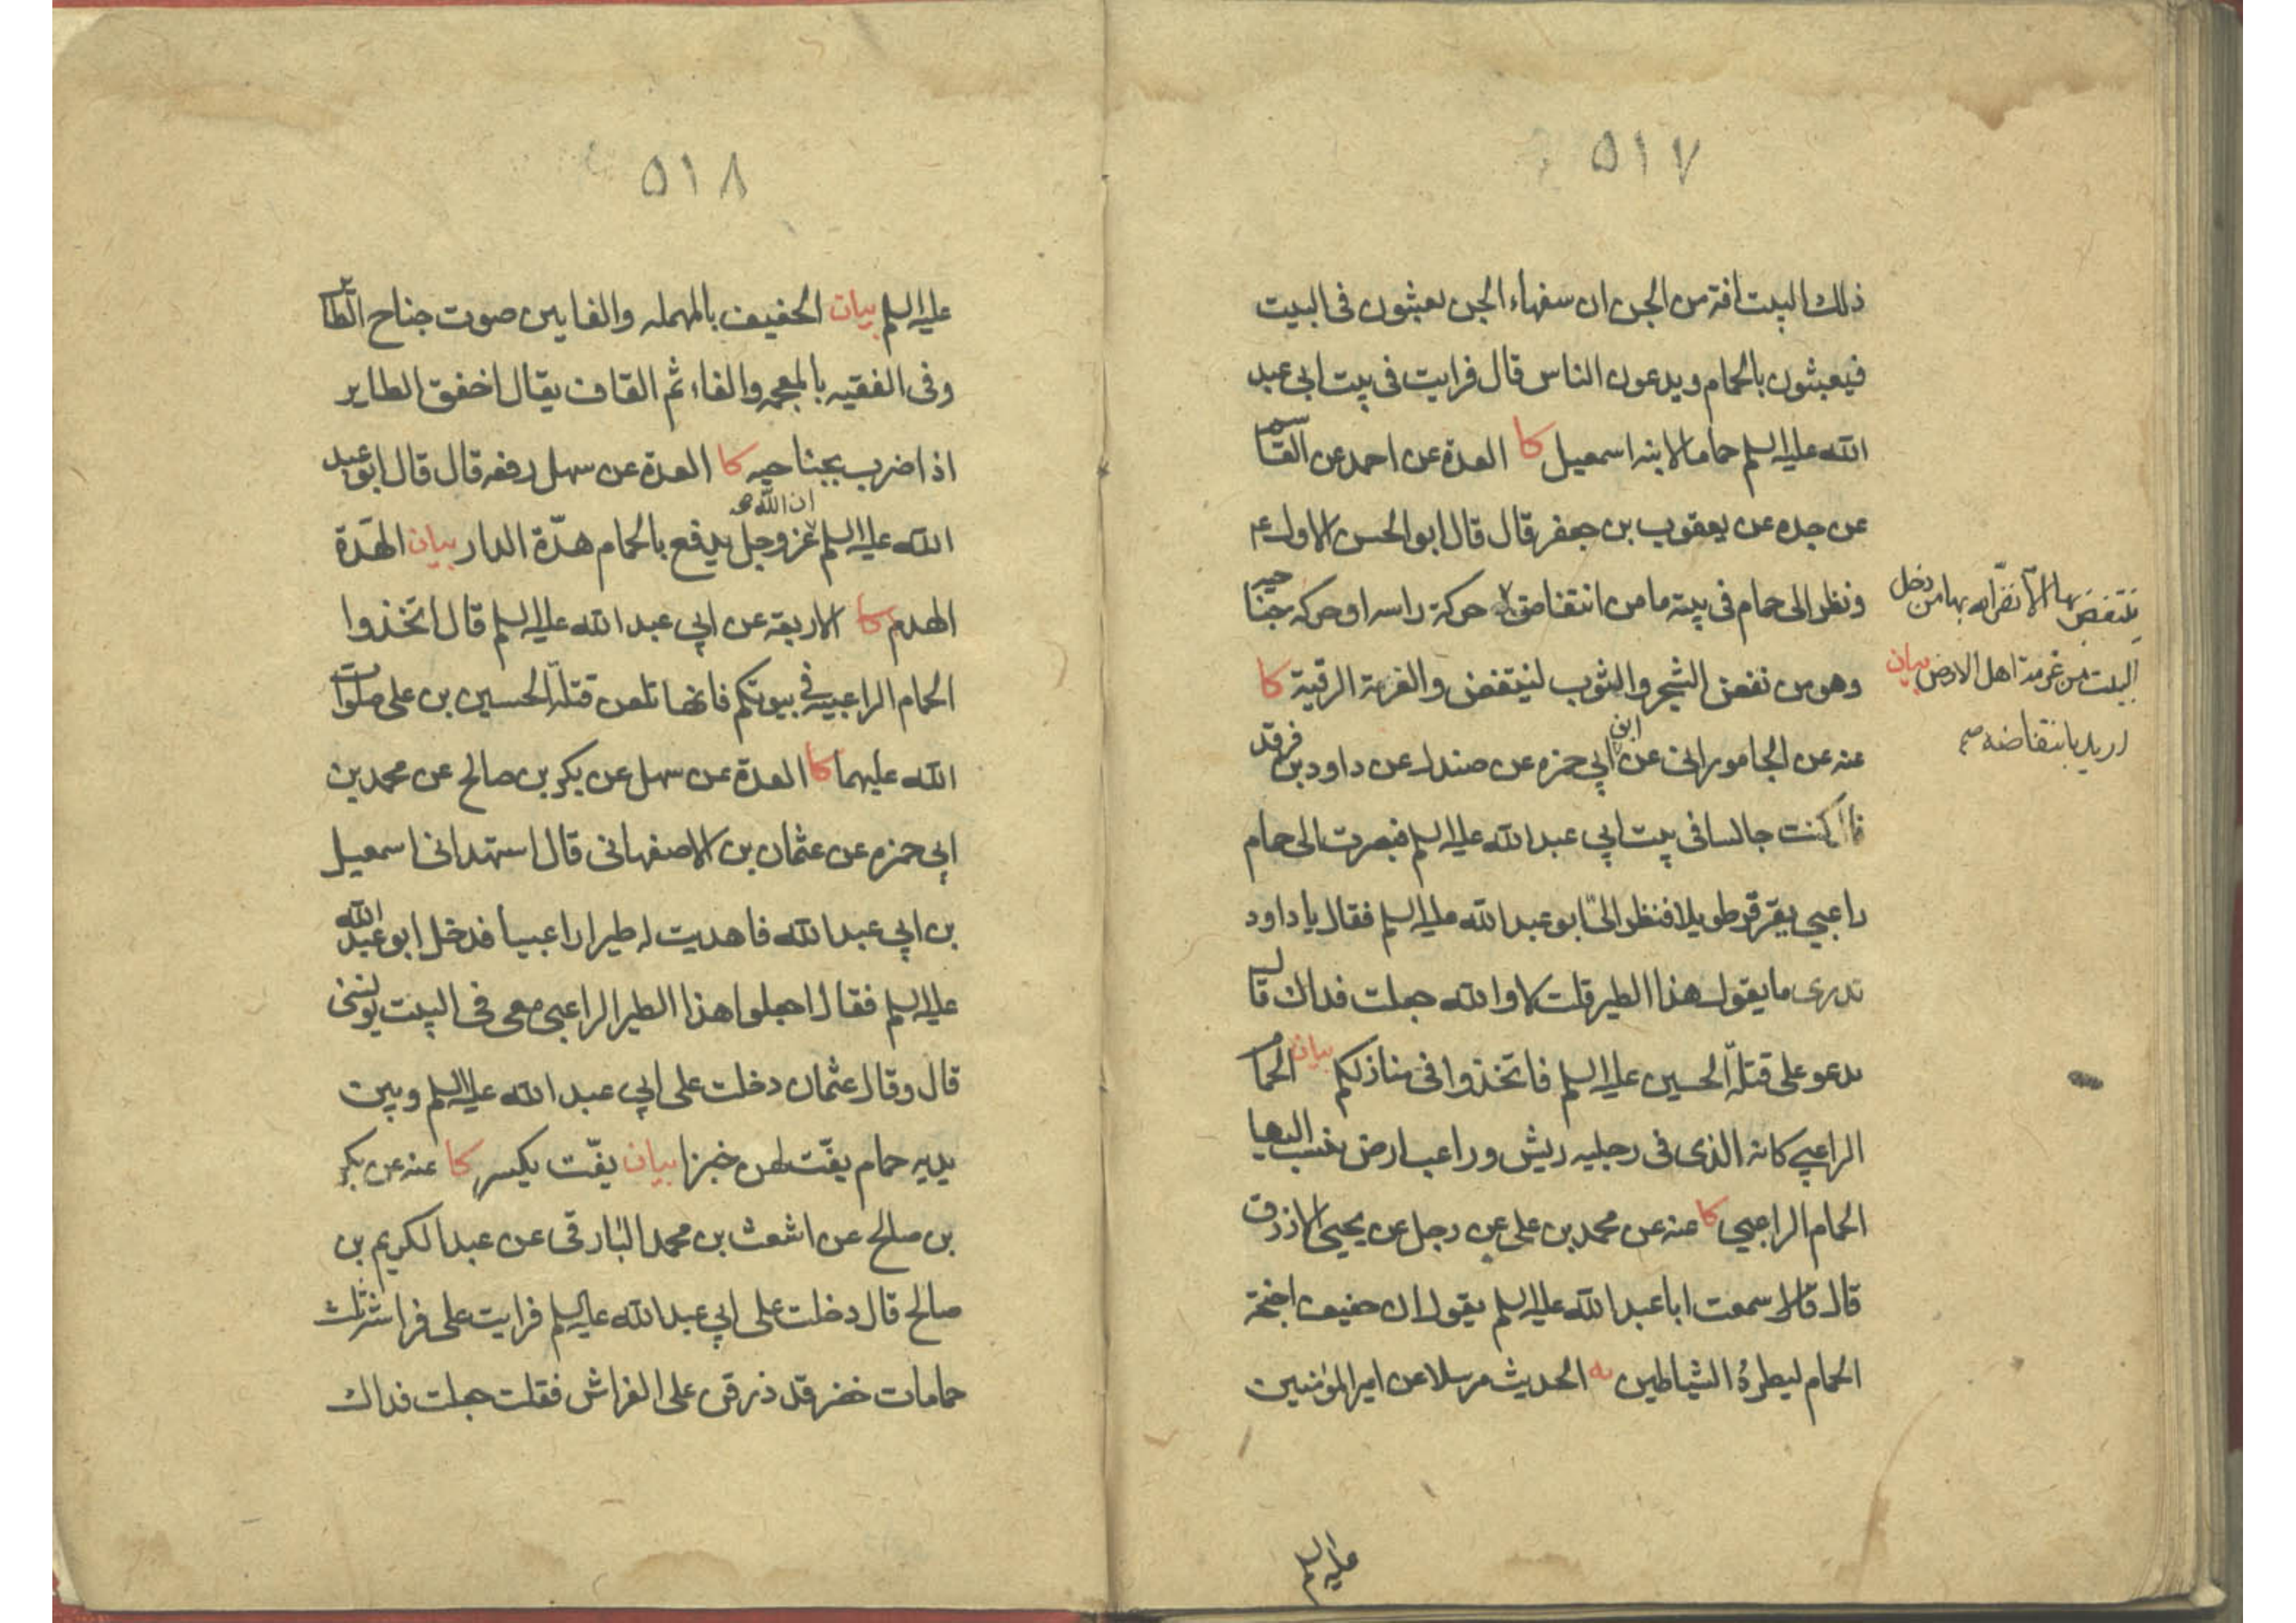 ٥١٧
ذلك البيت افة من الجن ان سفهاء الجن يعبثون فى البيت
فيعبثون بالحمام ويدعون الناس قال فرايت فى بيت ابى عبد
الله عليه السلم حماما لابنه اسمعيل كا العدة عن احمد عن القسم
عن جده عن يعقوب بن جعفر قال قال ابو الحسن الاول ع
ونظر الى حمام فى بيته ما من انتفاض حركة راسه او حركه جناحيه
وهو من نفض الشجر والثوب لينتفض والغرمة الرقية كا
عنه عن الجامورانى عن ابن ابي حمزه عن صندل عن داود بن فرقد
قال كنت جالسا فى بيت ابي عبد الله عليه السلم فبصرت الى حمام
راعبي يقرقر طويلا فنظر الىّ ابو عبد الله عليه السلم فقال يا داود
تدرى ما يقول هذا الطير قلت لا والله جعلت فداك قال
يدعو على قتلة الحسين عليه السلم فاتخذوا فى منازلكم بيان الحمام
الراعبي كانه الذى فى رجليه ريش وراعب ارض ينسب اليها
الحمام الراعبي كا عنه عن محمد بن على عن رجل عن يحيى الازرق
قال قال سمعت ابا عبد الله عليه السلم يقول ان حفيف اجنحة
الحمام ليطرد الشياطين يه الحديث مرسلا عن امير المؤمنين
ينتفض بها الا نفر الله بها من دخل
البيت من غرمة اهل الارض بيان
اريد بانتفاضه صح
عليه السلم
٥١٨
عليه السلم بيان الحفيف بالمهمله والفايين صوت جناح الطاير
وفى الفقيه بالمعجمه والفاء ثم القاف يقال اخفق الطاير
اذا ضرب بجناحيه كا العدة عن سهل رفعه قال قال ابو عبد
الله عليه السلم ان الله عز وجل يدفع بالحمام هدّة الدار بيان الهَدّة
الهدم كا الاربعة عن ابي عبد الله عليه السلم قال اتخذوا
الحمام الراعبية فى بيوتكم فانها تلعن قتلة الحسين بن على صلوات
الله عليهما كا العدة عن سهل عن بكر بن صالح عن محمد بن
ابي حمزه عن عثمان بن الاصفهانى قال استهدانى اسمعيل
بن ابي عبد الله فاهديت له طيرا راعبيا فدخل ابو عبد الله
عليه السلم فقال اجعلوا هذا الطير الراعبى معى فى البيت يونسنى
قال وقال عثمان دخلت على ابي عبد الله عليه السلم وبين
يديه حمام يفتّ لهن خبزا بيان يفتّ يكسر كا عنه عن بكر
بن صالح عن اشعث بن محمد البارقى عن عبد الكريم بن
صالح قال دخلت على ابي عبد الله عليه السلم فرايت على فراشه ثلث
حمامات خضر قد ذرقن على الفراش فقلت جعلت فداك